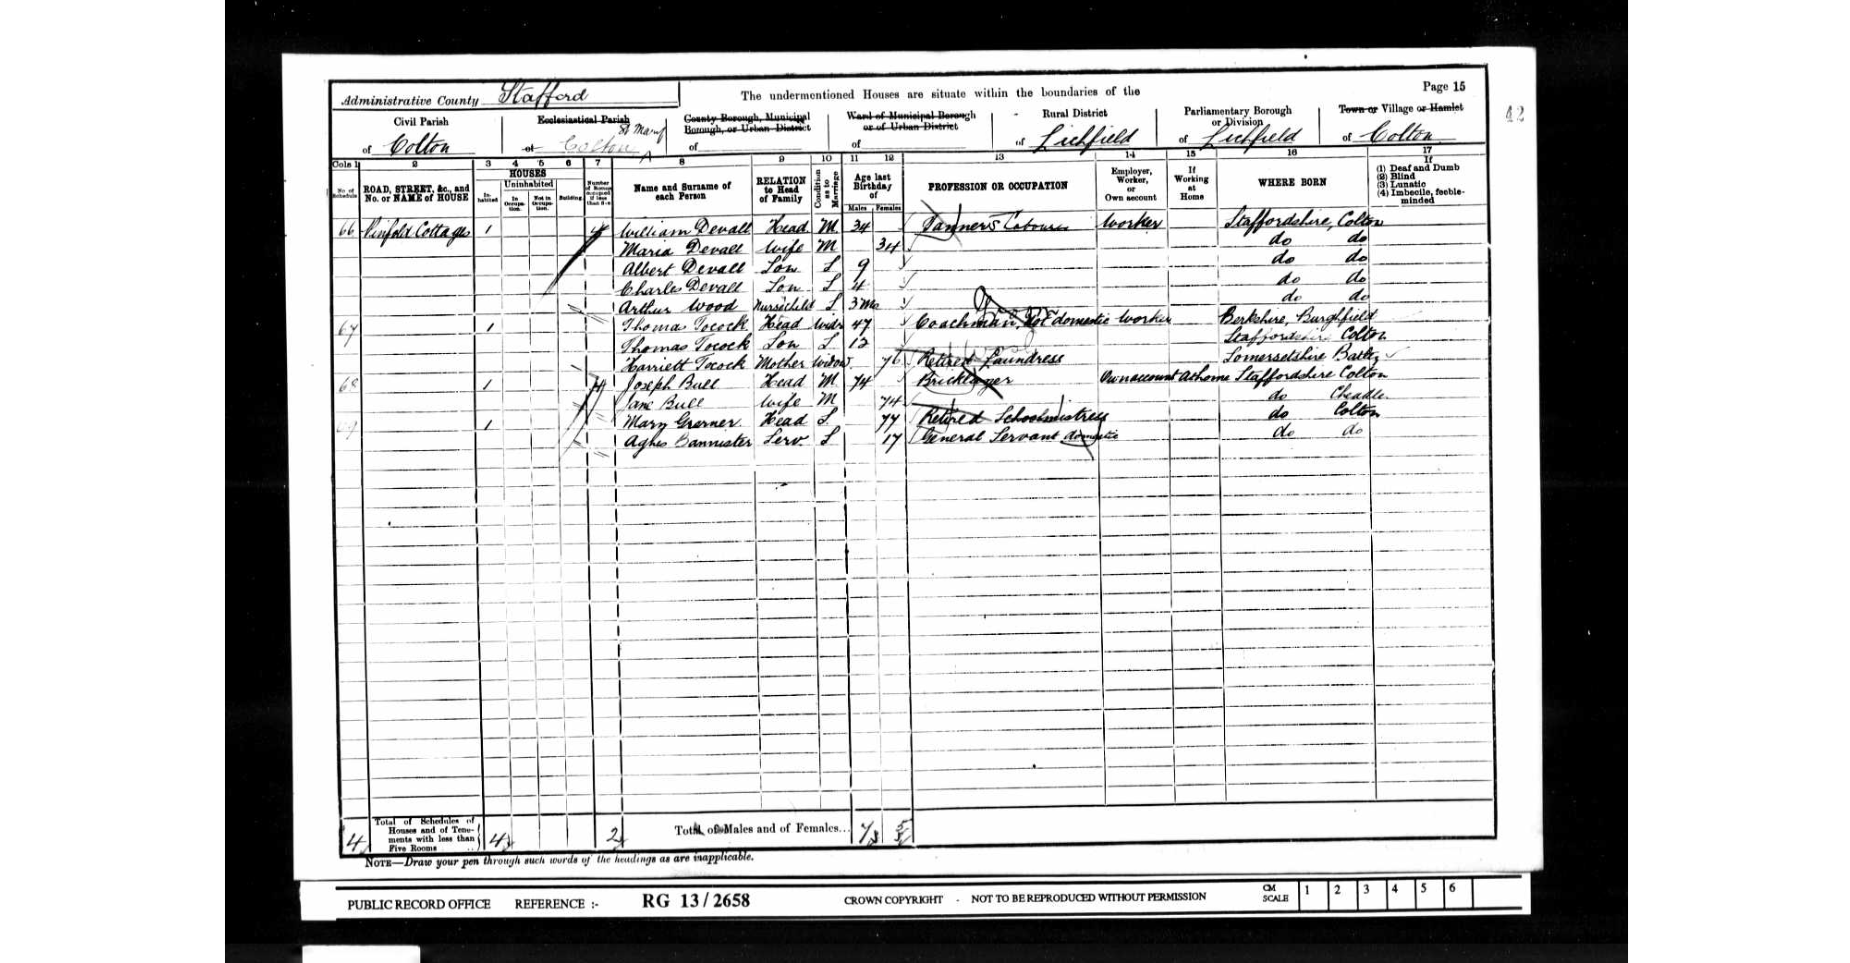 Page 15
Administrative County Stafford
The undermentioned Houses are situate within the boundaries of the
42
Civil Parish
of Colton
Ecclesiastical Parish
St Mary
of Colton
County Borough, Municipal
Borough, or Urban District
of
Ward of Municipal Borough
or of Urban District
of
Rural District
of Lichfield
Parliamentary Borough
or Division
of Lichfield
Town or Village or Hamlet
of Colton
Cols 1 2 3 4 5 6 7 8 9 10 11 12 13 14 15 16 17
No. of Schedule
ROAD, STREET, &c., and
No. or NAME of HOUSE
HOUSES
In-habited
Uninhabited
In Occupa-tion.
Not in Occupa-tion.
Building.
Number of Rooms occupied if less than five
Name and Surname of
each Person
RELATION
to Head
of Family
Condition as to Marriage
Age last
Birthday
of
Males Females
PROFESSION OR OCCUPATION
Employer,
Worker,
or
Own account
If
Working
at
Home
WHERE BORN
If
(1) Deaf and Dumb
(2) Blind
(3) Lunatic
(4) Imbecile, feeble-
minded
66 Pinfold Cottages 1 4 William Devall Head M 34 Tanner's Labourer Worker Staffordshire, Colton
Maria Devall Wife M 34 do do
Albert Devall Son S 9 do do
Charles Devall Son S 4 do do
Arthur Wood Nursechild S 3 Mo do do
67 1 Thomas Tocock Head Widr 47 Coachman, Not domestic Worker Berkshire, Burghfield
Thomas Tocock Son S 12 Staffordshire Colton
Harriett Tocock Mother Widow 76 Retired Laundress Somersetshire Bath
68 1 4 Joseph Bull Head M 74 Bricklayer Own account At home Staffordshire Colton
Jane Bull Wife M 74 do Cheadle
69 1 Mary Head S 77 Retired Schoolmistress do Colton
Agnes Bannister Serv S 17 General Servant domestic do do
4 Total of Schedules of
Houses and of Tene-
ments with less than
Five Rooms
4 2 Total of Males and of Females... 7 5
NOTE—Draw your pen through such words of the headings as are inapplicable.
PUBLIC RECORD OFFICE REFERENCE :- RG 13/2658 CROWN COPYRIGHT - NOT TO BE REPRODUCED WITHOUT PERMISSION CM SCALE 1 2 3 4 5 6